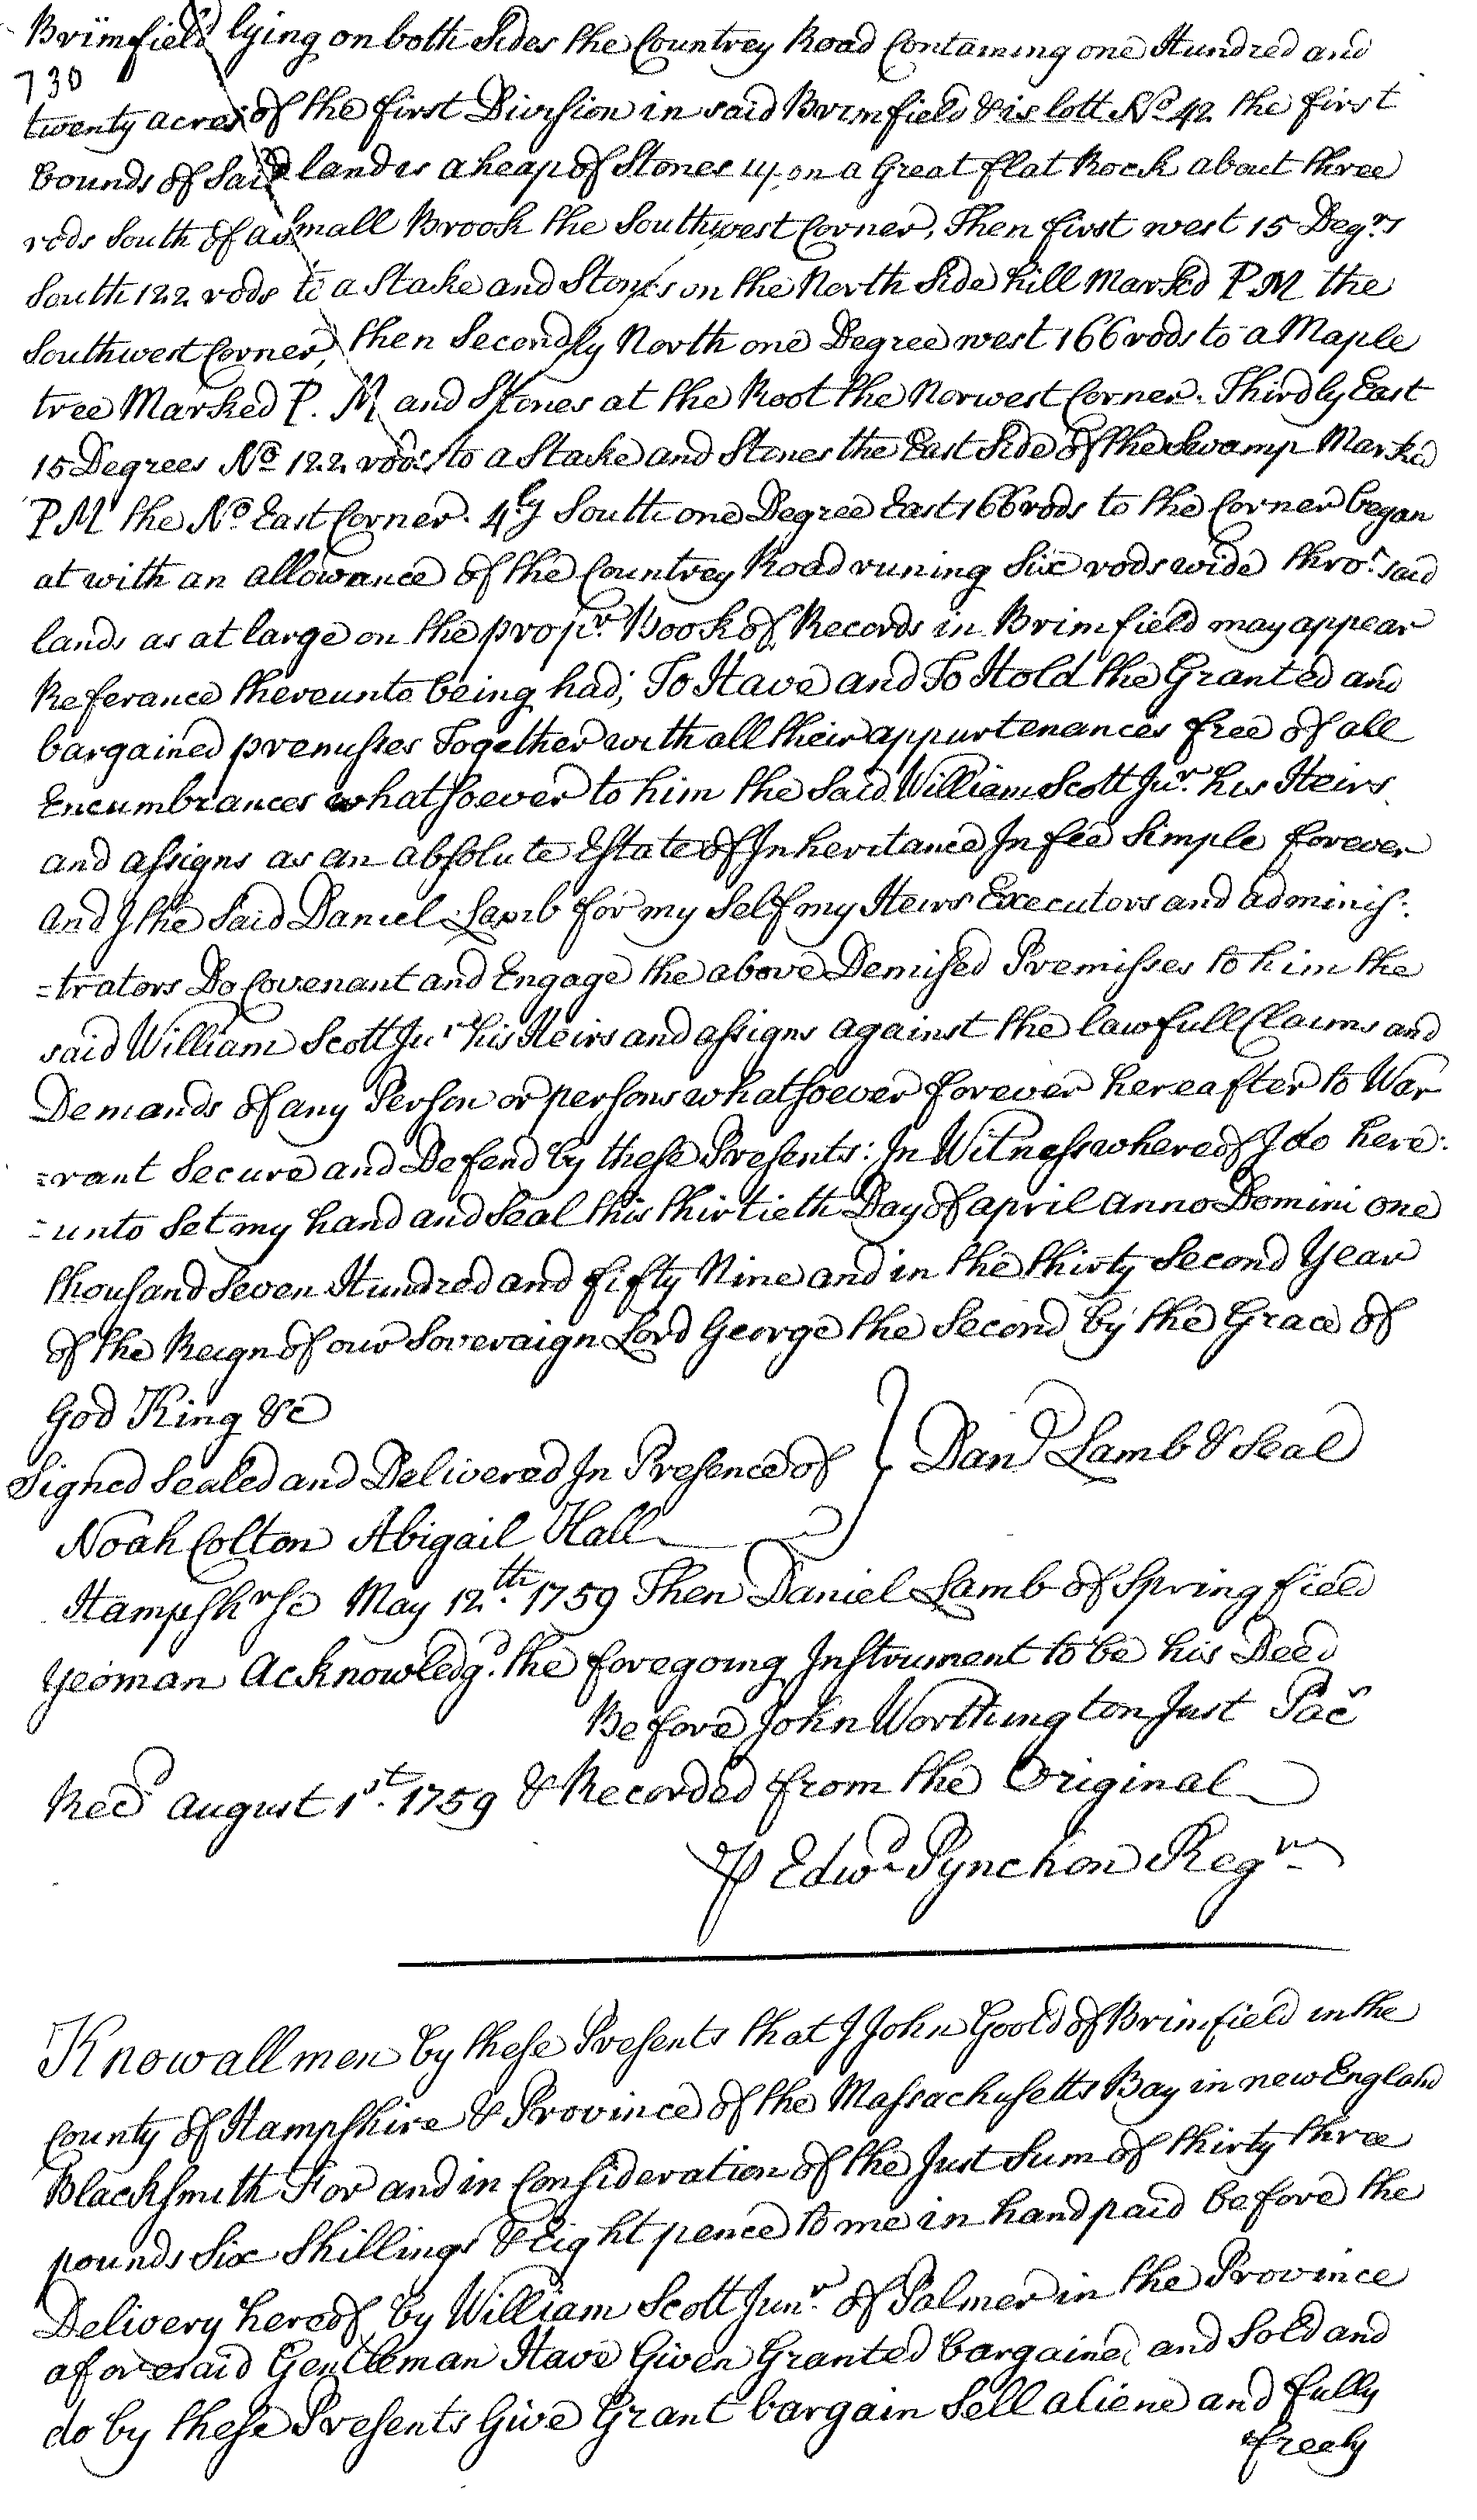 Brimfield lying on both Sides the Countrey Road Containing one Hundred and
730
twenty acres of the first Division in said Brimfield & is lott No 42 the first
bounds of Said land is a heap of Stones upon a Great flat Rock about three
rods South of a Small Brook the Southwest Corner, Then first west 15 Degrs
South 122 rods to a Stake and Stones on the North Side hill Marked P M the
Southwest Corner, then Secondly North one Degree west 166 rods to a Maple
tree Marked P. M and Stones at the Root the Norwest Corner. Thirdly East
15 Degrees No 122 rods to a Stake and Stones the East Side of the Swamp Marked
P M the No East Corner. 4ly South one Degree East 166 rods to the Corner began
at with an allowance of the Countrey Road runing Six rods wide thro' said
lands as at large on the propr. Book of Records in Brimfield may appear
Referance thereunto being had; To Have and To Hold the Granted and
bargained premisses Together with all their appurtenances free of all
Encumbrances whatsoever to him the Said William Scott Jur. his Heirs
and assigns as an absolute Estate of Inheritance In fee Simple forever
And I the Said Daniel Lamb for my Self my Heirs Executors and adminis:
=trators Do Covenant and Engage the above Demised Premisses to him the
said William Scott Jur his Heirs and assigns against the lawfull Claims and
Demands of any Person or persons whatsoever forever hereafter to War
=rant Secure and Defend by these Presents: In Witness whereof I do here:
=unto Set my hand and Seal this thirtieth Day of april Anno Domini one
thousand Seven Hundred and fifty Nine and in the thirty Second Year
of the Reign of our Soveraign Lord George the Second by the Grace of
God King &c
Signed Sealed and Delivered In Presence of } Danl Lamb & Seal
Noah Colton Abigail Hall
Hampshr Sc May 12th. 1759 Then Daniel Lamb of Springfield
Yeoman Acknowledgd. the foregoing Instrument to be his Deed
Before John Worthington Just Pac
Recd August 1st. 1759 & Recorded from the Original
P Edwd Pynchon Regr
Know all men by these Presents that I John Goold of Brimfield in the
County of Hampshire & Province of the Massachusetts Bay in new England
Blacksmith For and in Consideration of the Just Sum of thirty three
pounds Six Shillings & Eight pence to me in hand paid before the
Delivery hereof by William Scott Junr. of Palmer in the Province
aforesaid Gentleman Have Given Granted bargained and Sold and
do by these Presents Give Grant bargain Sell aliene and fully
freely